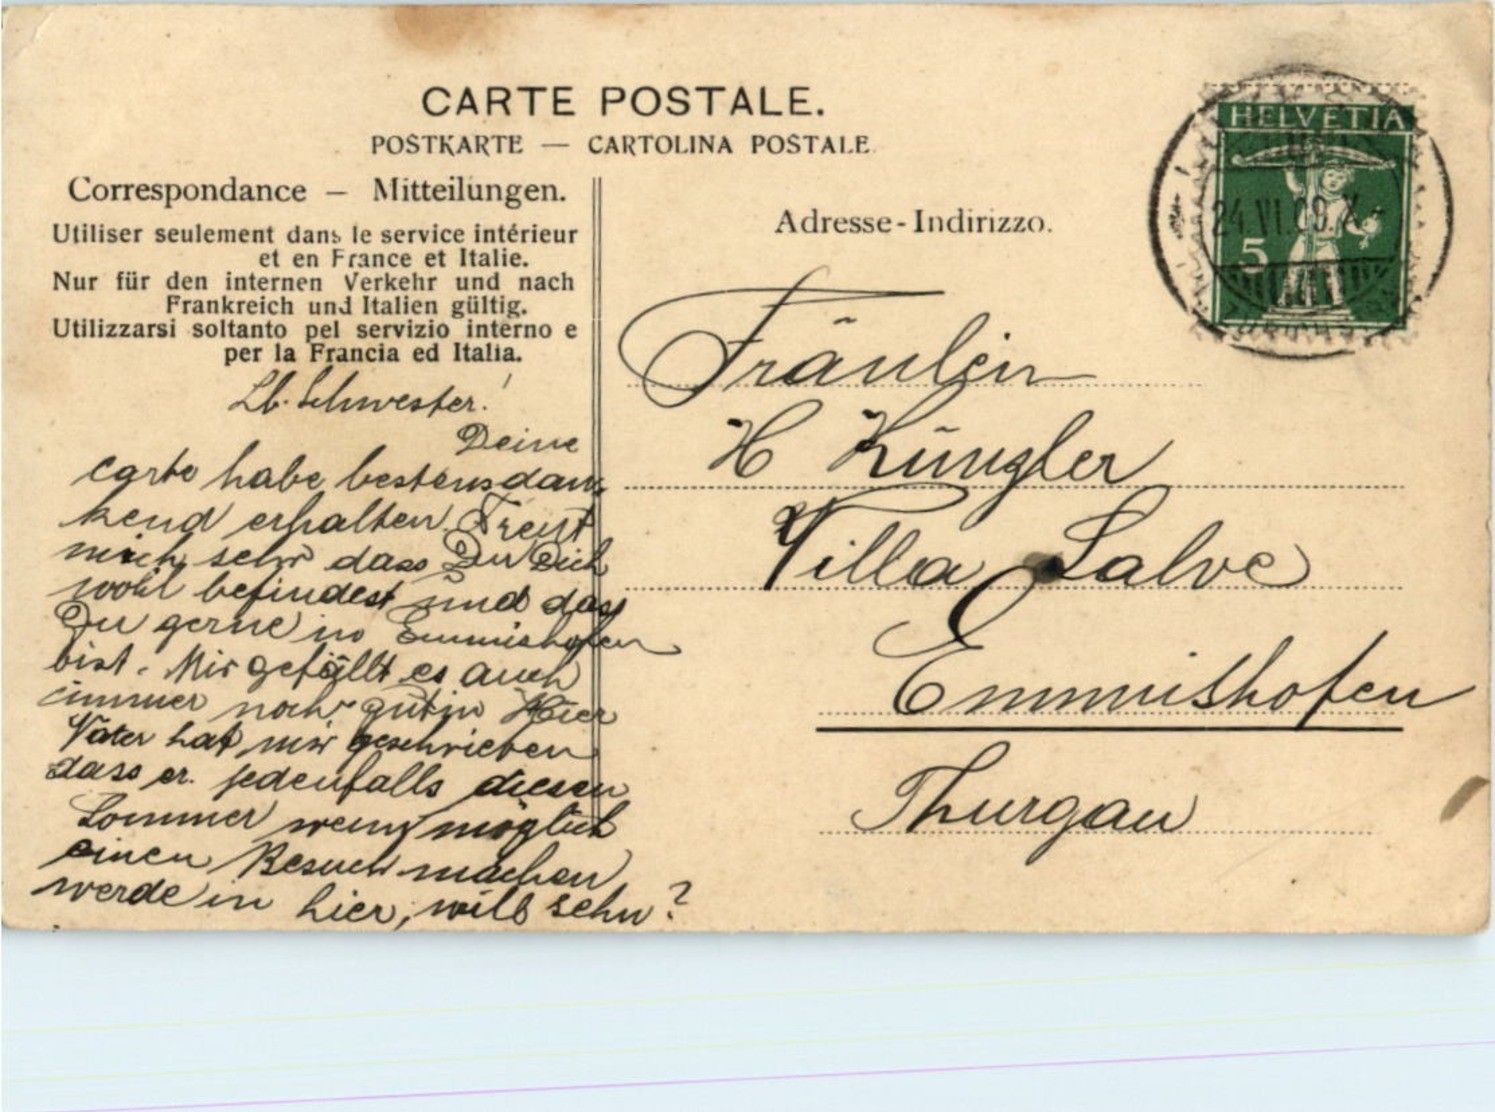 CARTE POSTALE.
POSTKARTE — CARTOLINA POSTALE
Correspondance – Mitteilungen.
Utiliser seulement dans le service intérieur
et en France et Italie.
Nur für den internen Verkehr und nach
Frankreich und Italien gültig.
Utilizzarsi soltanto pel servizio interno e
per la Francia ed Italia.
Lb. Schwester!
Deine
carte habe bestens dan-
kend erhalten. Freut
mich sehr dass Du Dich
wohl befindest und dass
Du gerne in Emmishofen
bist. Mir gefällt es auch
immer noch gut in Hier
Vater hat mir geschrieben
dass er jedenfalls diesen
Sommer wenn möglich
einen Besuch machen
werde in hier, will sehn?
Adresse-Indirizzo.
Fräulein
H Küngler
Villa Salve
Emmishofen
Thurgau
HELVETIA
5
24.VI.09.X